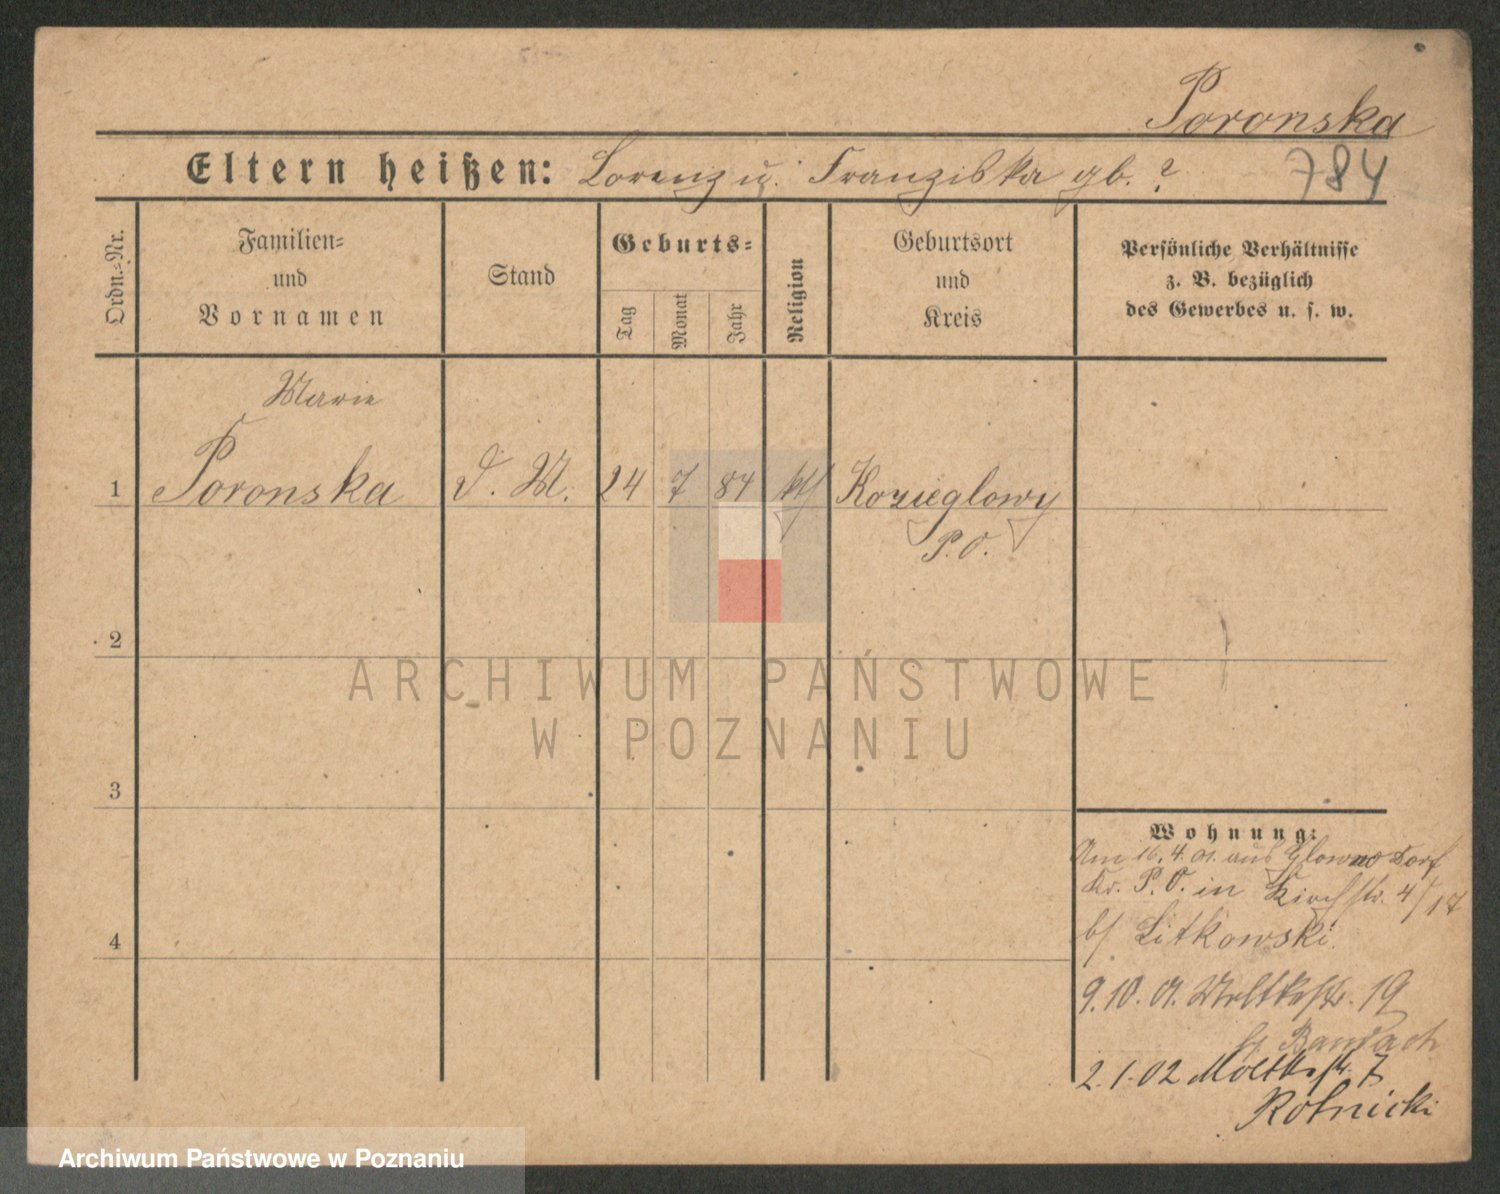 Poronska
Eltern heißen: Lorenz u. Franziska gb. ?
784
Ordn.=Nr.
Familien=
und
Vornamen
Stand
Geburts=
Tag
Monat
Jahr
Religion
Geburtsort
und
Kreis
Persönliche Verhältnisse
z. B. bezüglich
des Gewerbes u. s. w.
Marie
1 Poronska d. M. 24 7 84 kth Kozieglowy
P. O.
2
ARCHIWUM PAŃSTWOWE
W POZNANIU
3
Wohnung:
Am 16. 4. 01. aus Glowno Dorf
Kr. P. O. in Kirchstr. 4/17
b/ Litkowski
4
9. 10. 01. Moltkestr. 19
b/
2. 1. 02 Moltkestr. 7
Rotnicki
Archiwum Państwowe w Poznaniu